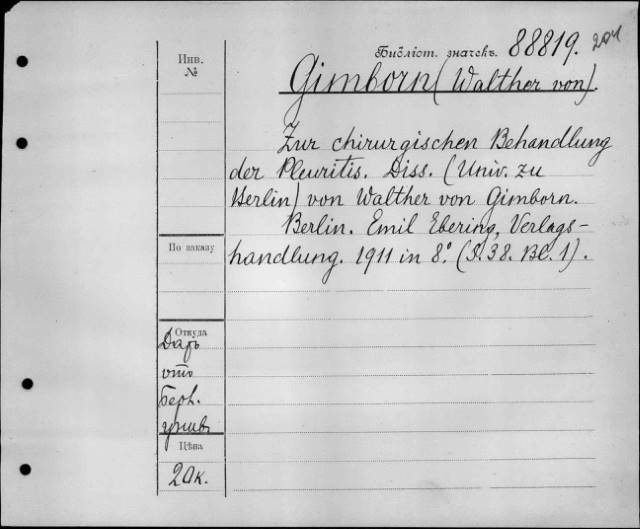 Инв.
№
Библіот. значекъ. 88819. 204
Gimborn (Walther von).
Zur chirurgischen Behandlung
der Pleuritis. Diss. (Univ. zu
Berlin) von Walther von Gimborn.
Berlin. Emil Ebering, Verlags-
handlung. 1911 in 8.° (S. 38. Bl. 1).
По заказу
Откуда
Даръ
отъ
Берл.
унив.
Цѣна
20к.